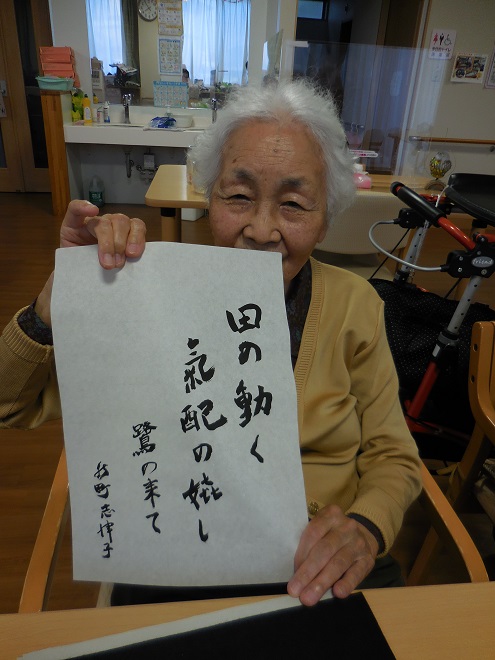 田の動く
氣配の嬉し
鷺の来て
志津子